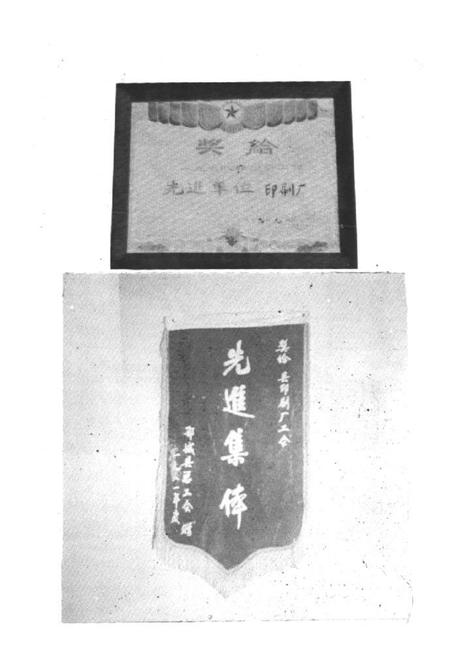 奖给
先进单位 印刷厂
奖给 县印刷厂工会
先進集体
县总工会 赠